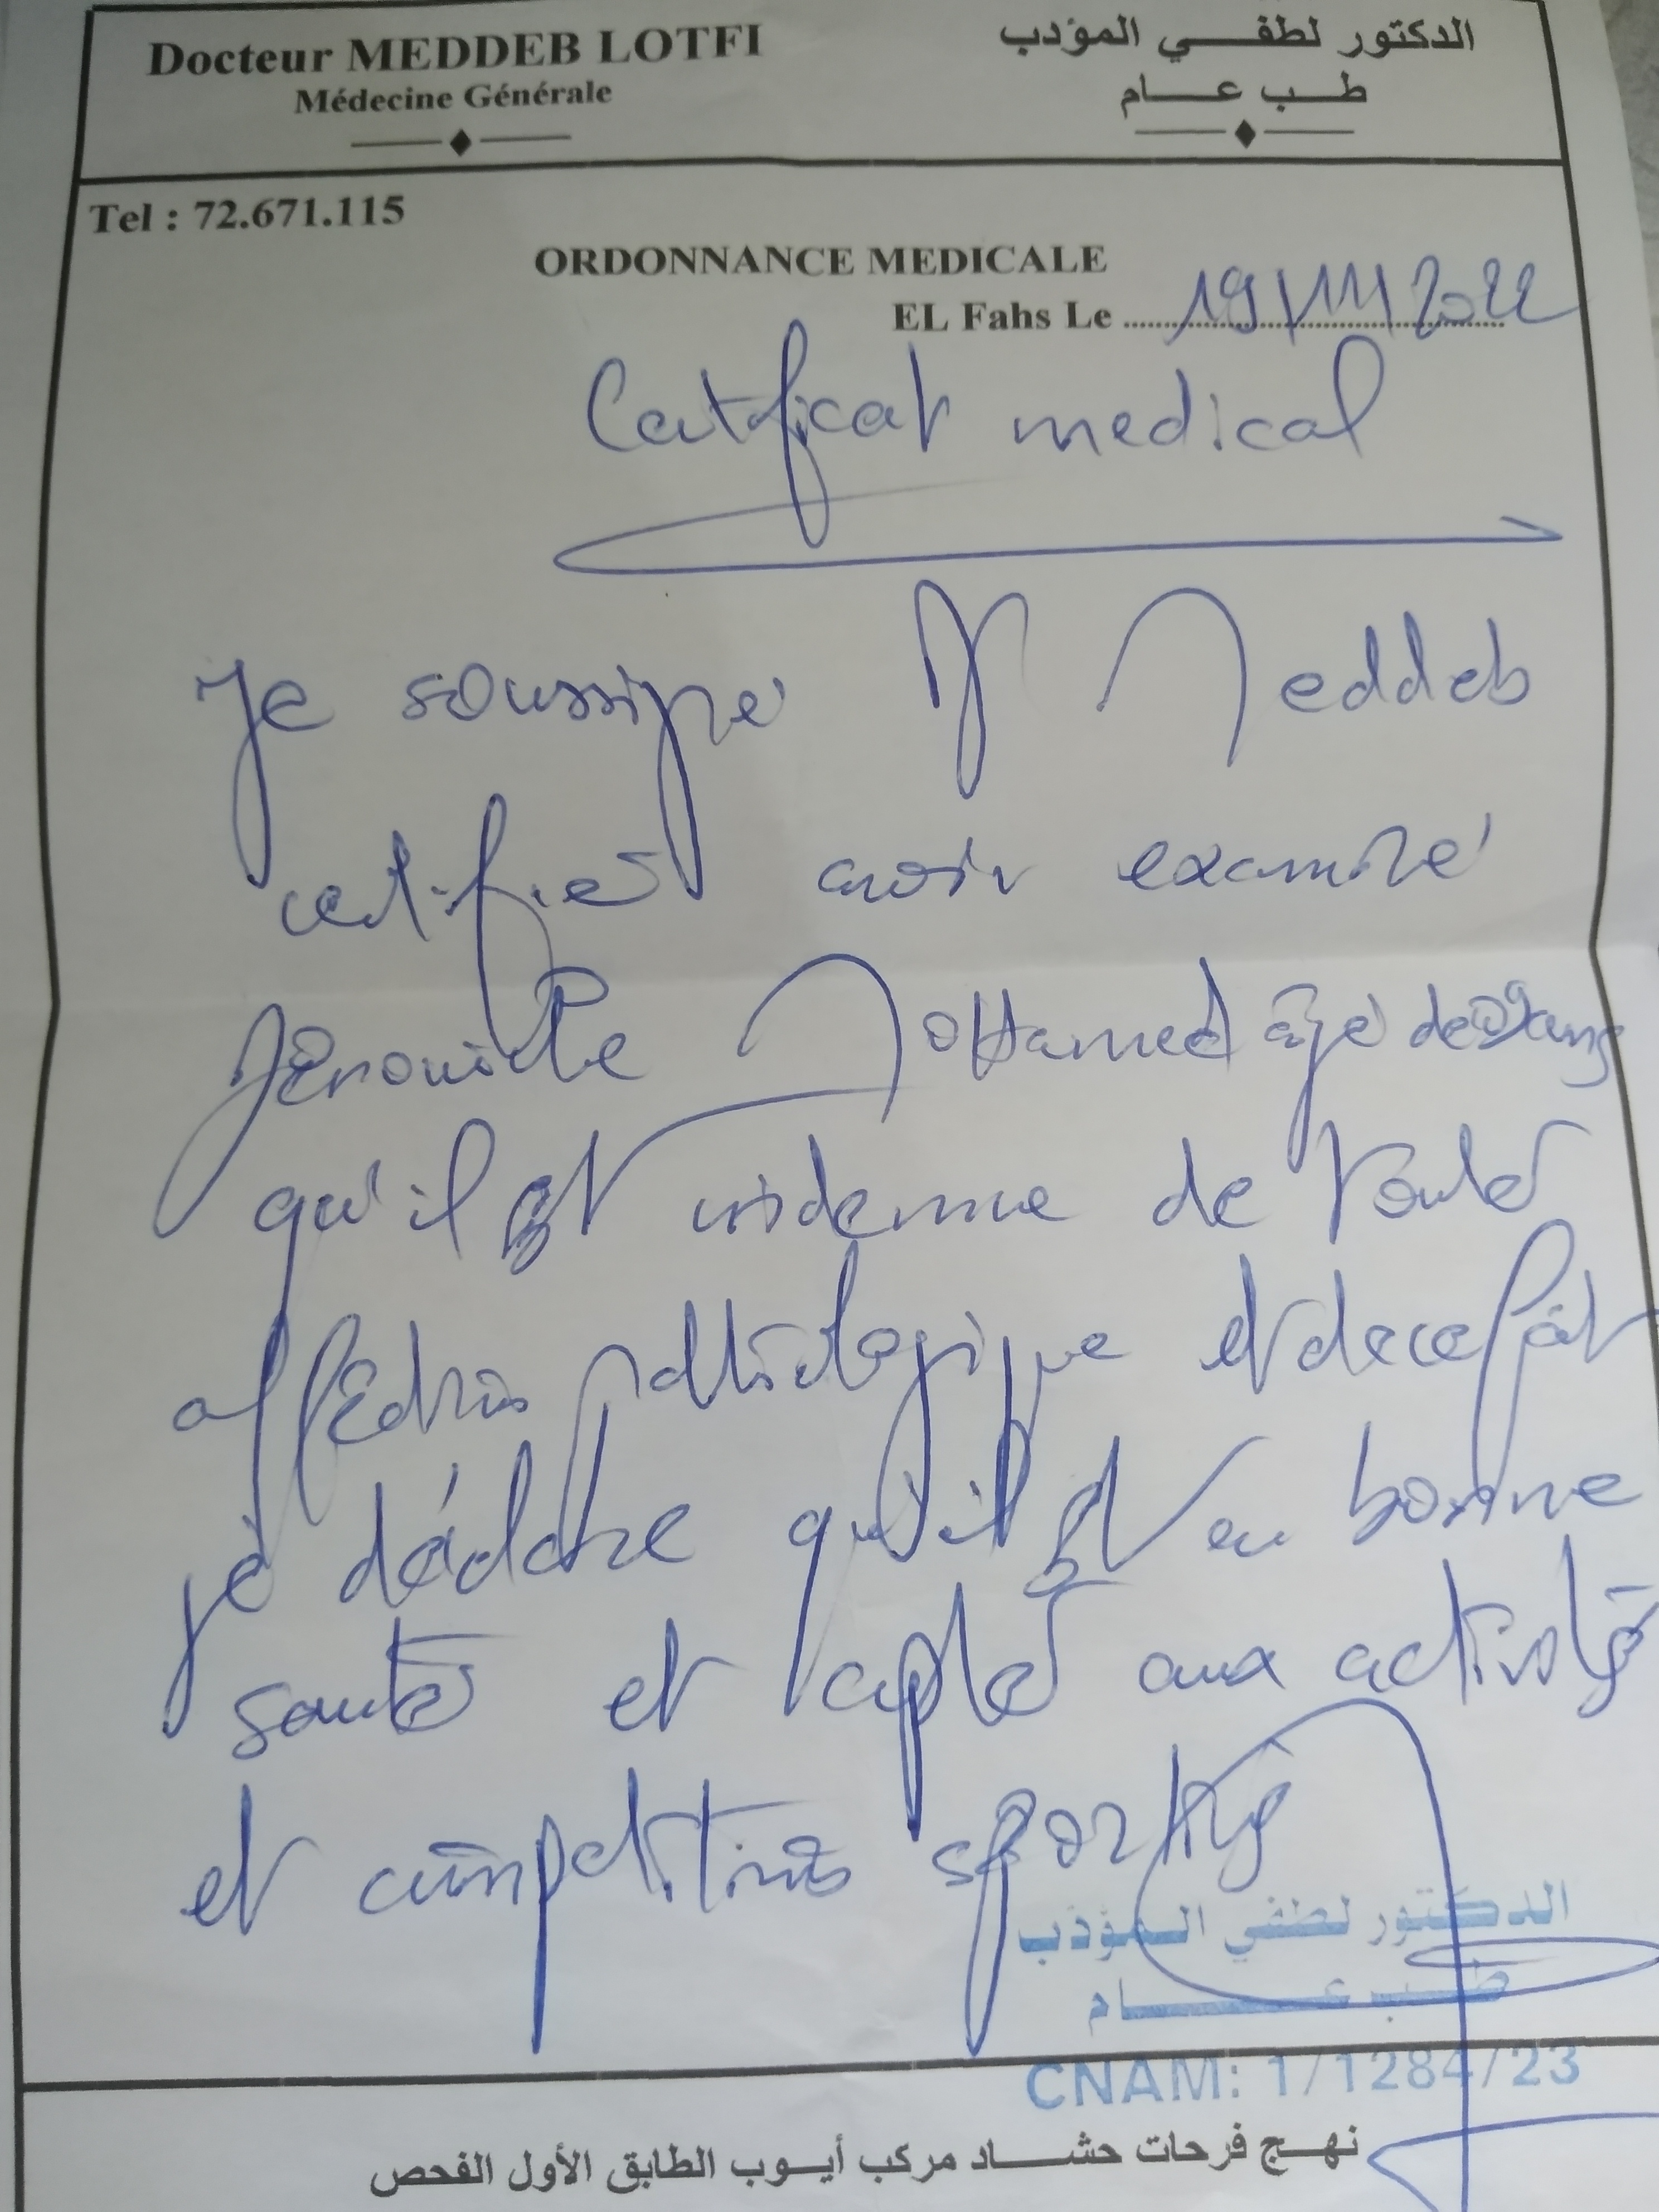 Docteur MEDDEB LOTFI
Médecine Générale
الدكتور لطفي المؤدب
طب عام
Tel : 72.671.115
ORDONNANCE MEDICALE
EL Fahs Le 19/11/2022
Certificat medical
Je soussigné Dr Meddeb
certifie avoir examiné
Mohamed âgé de ans
qu'il est indemne de toute
affection pathologique et de ce fait
je déclare qu'il est en bonne
santé et apte aux activités
et compétitions sportives
الدكتور لطفي المؤدب
طب عام
CNAM: 1/1284/23
نهج فرحات حشاد مركب أيوب الطابق الأول الفحص